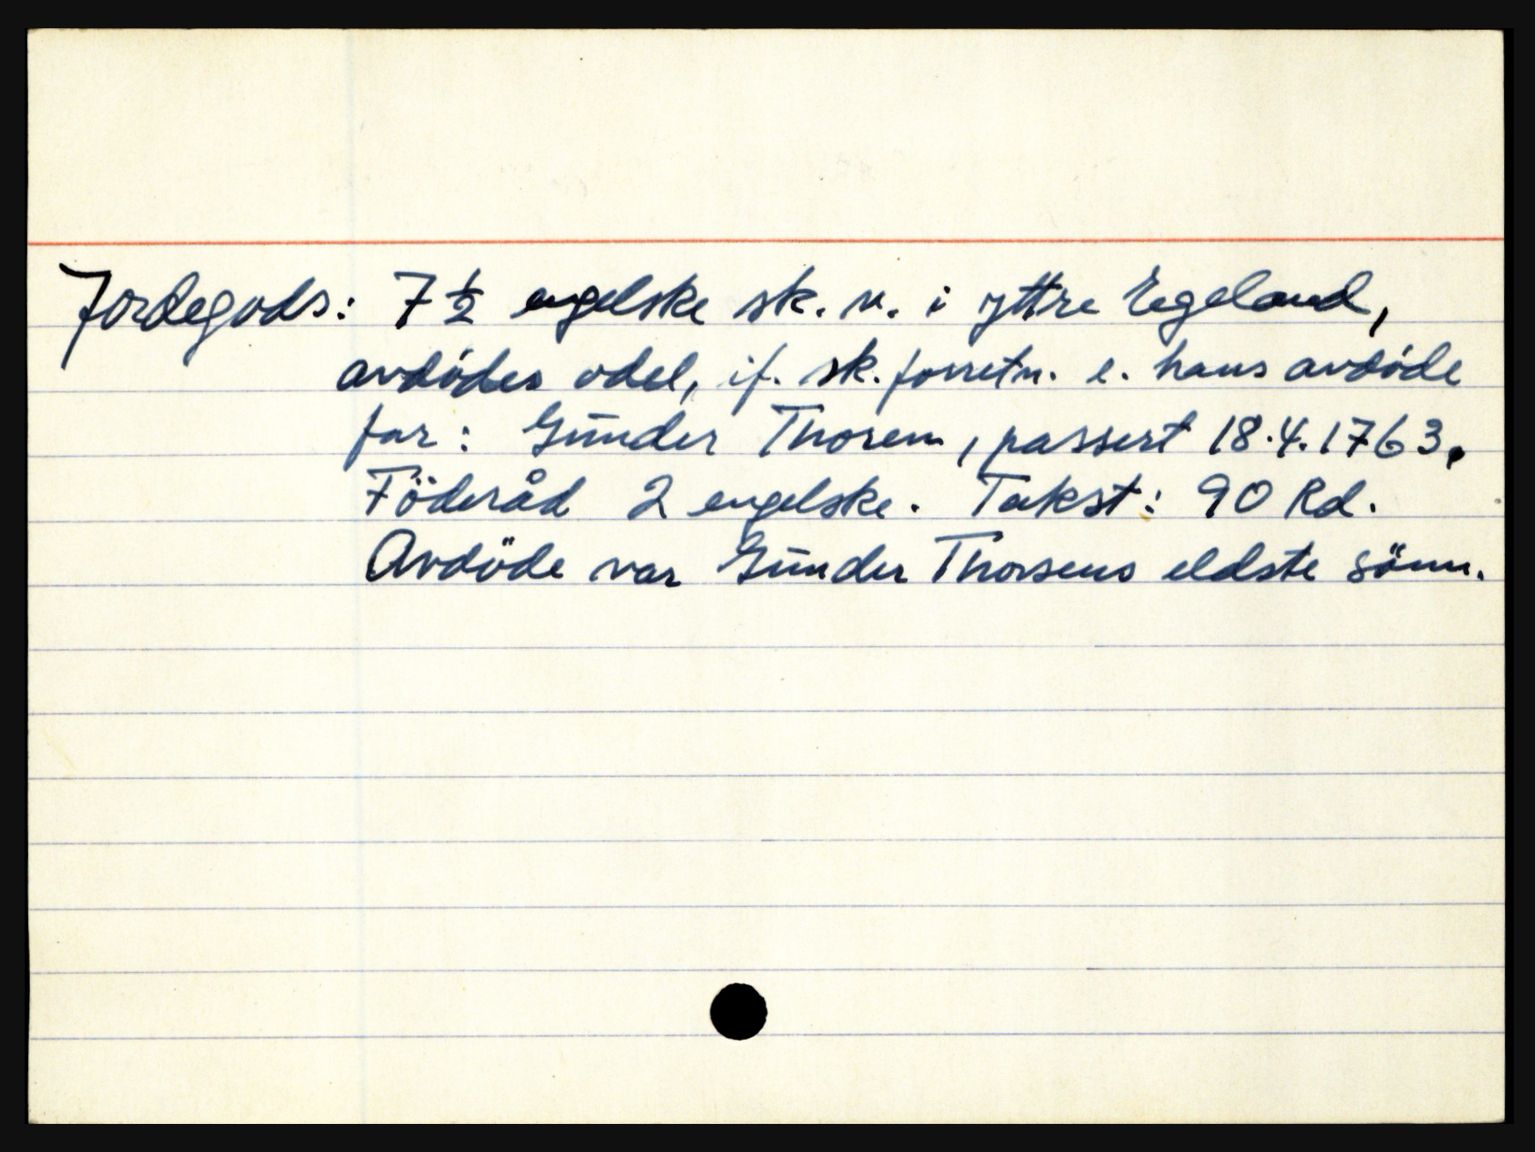 Jordegods: 7 ½ engelske sk. n. i yttre Egeland,
avdödes odel, if. sk. forretn. e. hans avdöde
far: Gūnder Thorsen, passert 18.4.1763.
Föderåd 2 engelske. Takst: 90 Rd.
Avdöde var Gūnder Thorsens eldste sönn.